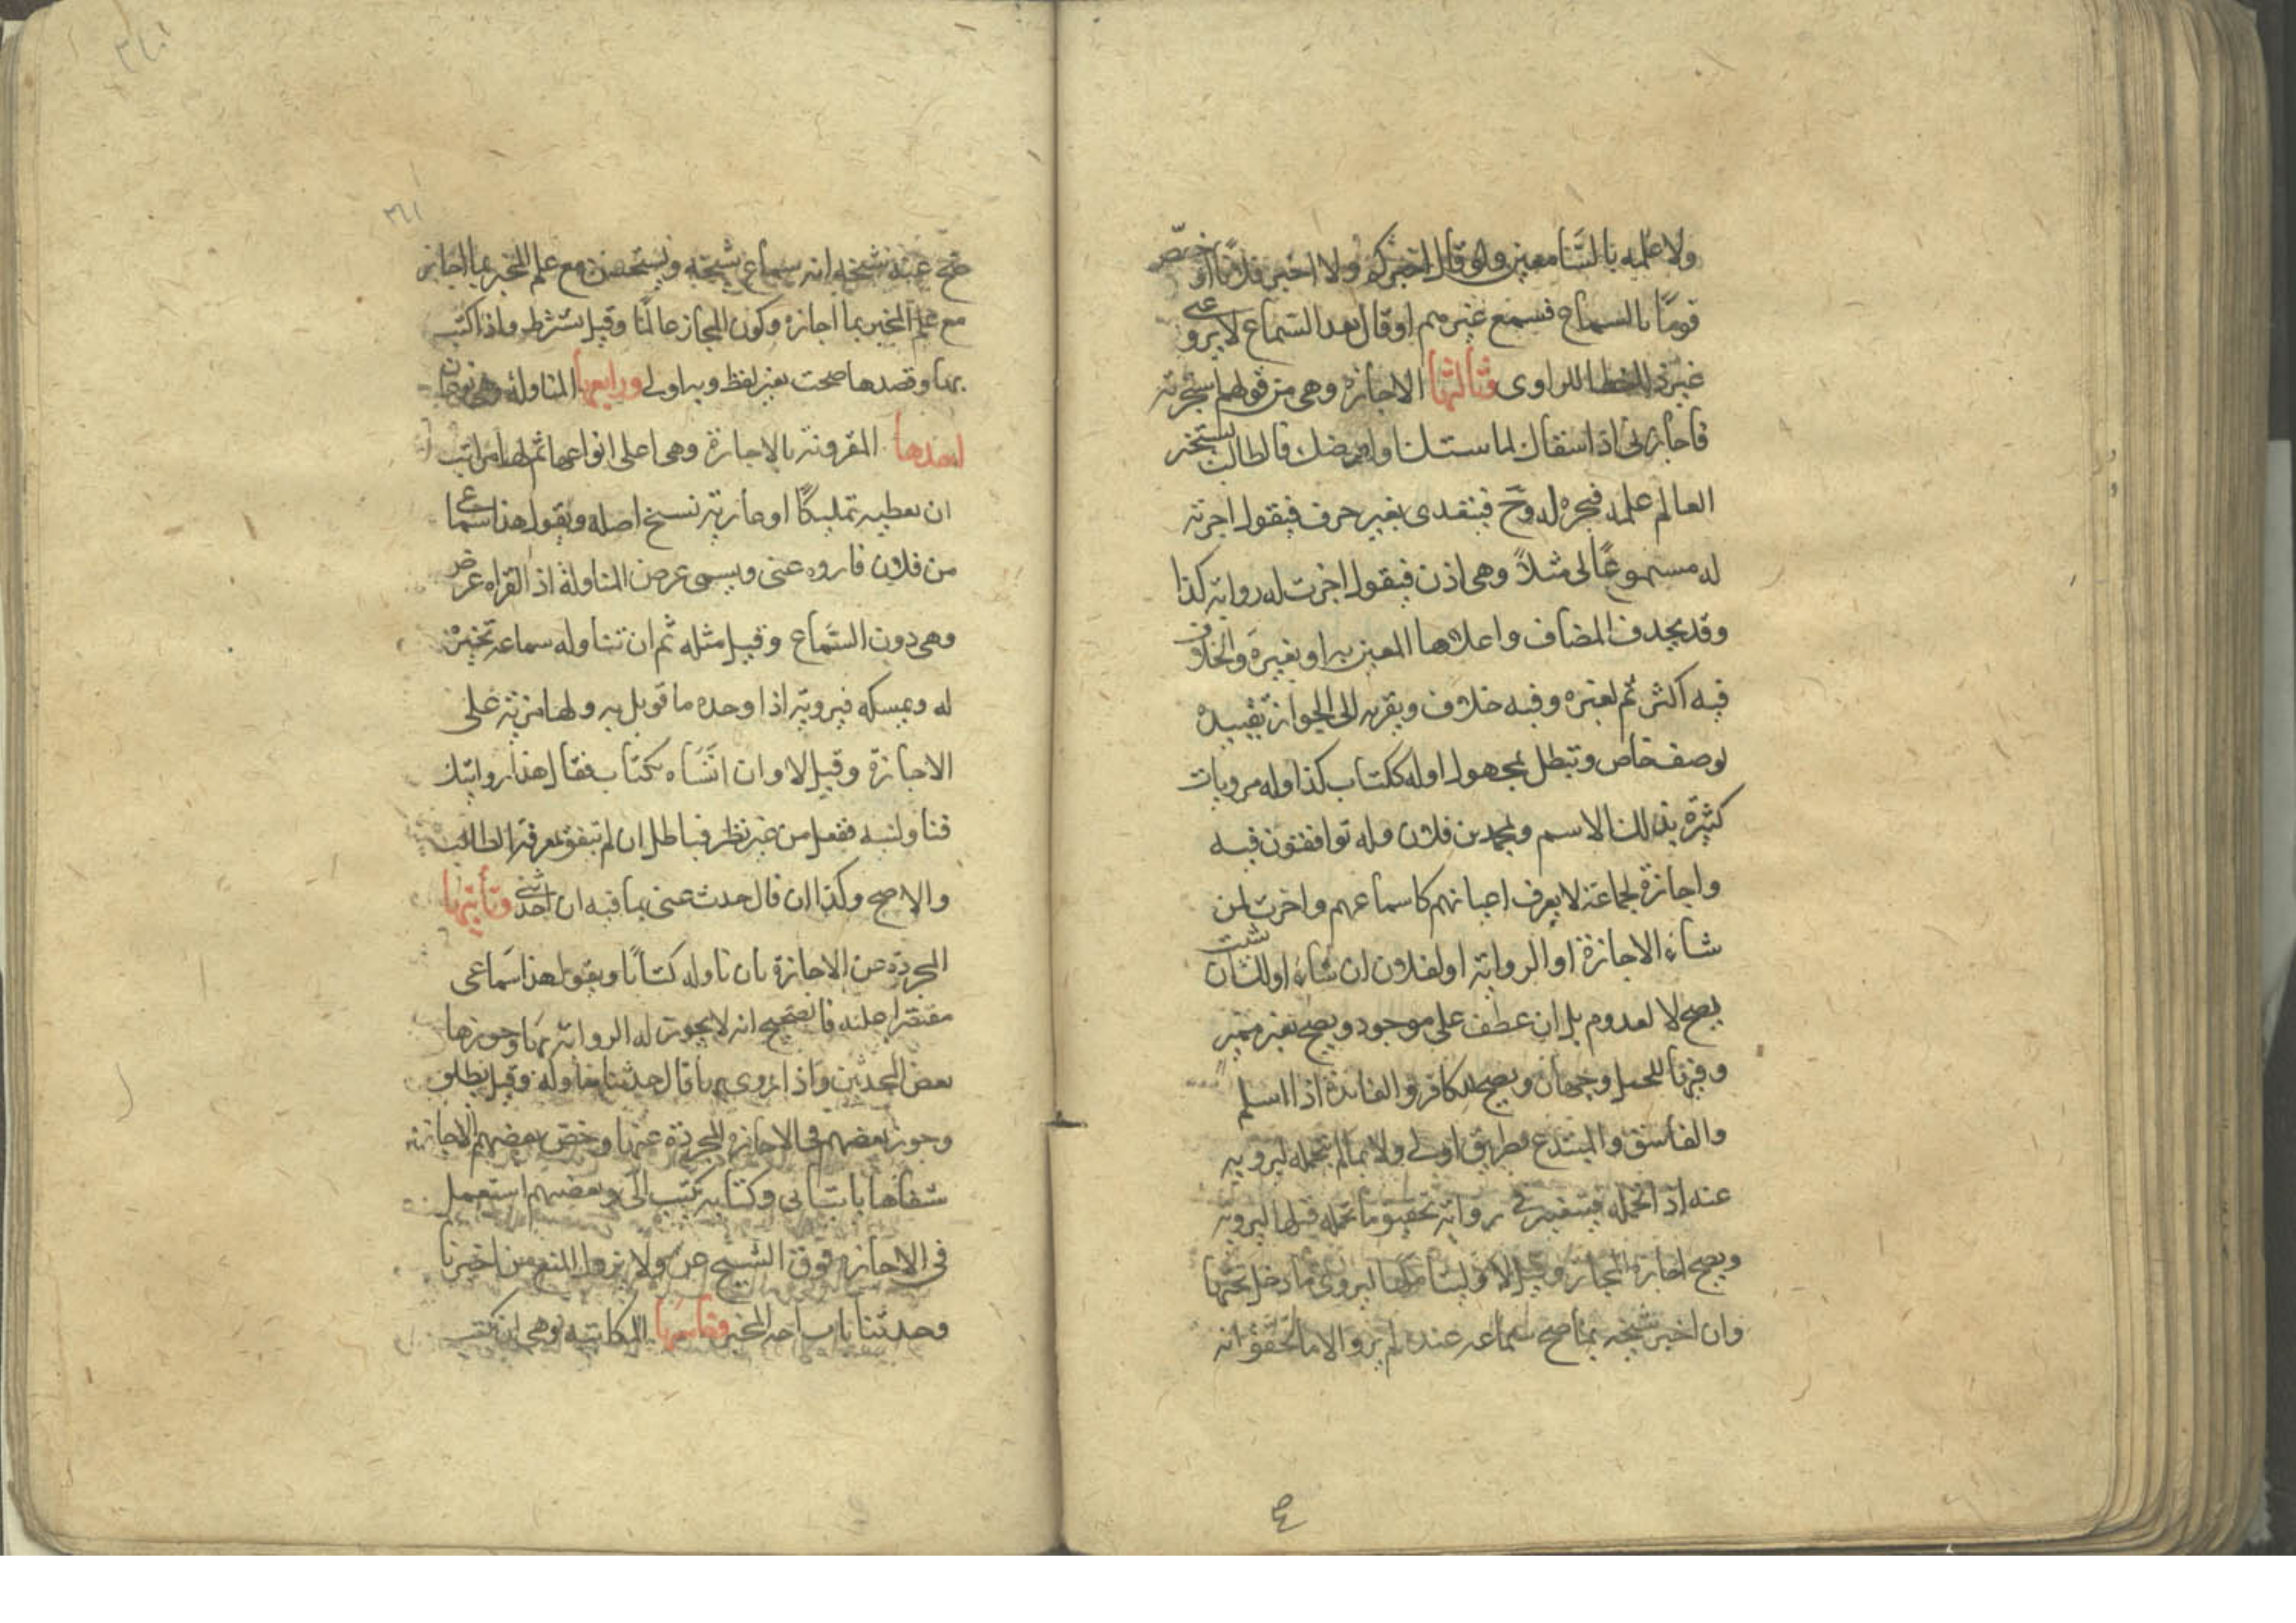 ولا علمه بالسامعين ولو قال اخبركم ولا اخبر فلانا او خصص
قومًا بالسماع فسمع غيرهم او قال بعد السماع لا يرو عني
غير ذاكر خطا للراوى وثالثها الاجازة وهى من قولهم استجزته
فاجازنى اذا سقاك لماشيتك او ارضك فالطالب يستجيز
العالم علمه فيجيزه له وح فيتعدى بغير حرف فيقول اجزته
له مسموعًا لى مثلًا وهى اذن فيقول اجزت له رواية كذا
وقد يحذف المضاف واعلاها المعين به او بغيره والخلاف
فيه اكثر ثم لغيره وفيه خلاف ويقربه الى الجواز تقييده
بوصف خاص وتبطل بمجهول اوله ككتاب كذا وله مرويات
كثيرة بذلك الاسم ومحمد بن فلان وله توافقون فيه
واجازة لجماعة لا يعرف اعيانهم كاسماعهم واجزت لمن
شاء الاجازة او الرواية او لفلان ان شاء اولك ان شئت
يصح لا لمعدوم بل ان عطف على موجود ويصح بغير مميز
وقرنا للحمل وجهان ويصح للكافر والفائدة اذا اسلم
والفاسق والمبتدع بطريق اولى ولا بما لم يتحمله ليرويه
عنه اذا تحمله فيتعين فى رواية تحقيق ما تحمله قبلها ليرويه
ويصح اجازة المجاز وقيل لا وليتاملها ليروى ما دخل تحتها
وان اخبر شيخه بما صح سماعه عنده لم يرو الا ما تحقق انه
صح عند شيخه انه سماع شيخه ويستحسن مع علم المخبر بما اجاز
مع علم المخبر بما اجازه وكون المجاز عالمًا وقيل يشترط واذا كتب
بها وقصدها صحت بغير لفظ وبه اولى ورابعها المناولة وهى نوعان
احدها المقرونة بالاجازة وهى اعلى انواعها ثم لها مراتب
ان يعطيه تمليكًا او عارية نسخ اصله ويقول هذا سماعى
من فلان فاروه عنى ويسمى عرض المناولة اذ القراه عرض
وهى دون السماع وقيل مثله ثم ان تناوله سماعه تخيره
له ويمسكه فيرويه اذا وجده ما قوبل به ولها مزية على
الاجازة وقيل لا وان اتاه بكتاب فقال هذا روايتك
فناولنيه ففعل من غير نظر فباطل ان لم يتفق معرفة الطالب
والاصح وكذا ان قال حدث عنى بما فيه ان احدثنى وثانيها
المجردة عن الاجازة بان ناوله كتابًا ويقول هذا سماعى
مقتصرا عليه فالصحيح انه لا يجوز له الرواية بها وجوزها
بعض المحدثين واذا روى بها قال حدثنا مناولة وقيل يطلق
وجوز بعضهم فى الاجازة المجردة عنها وخص بعضهم الاجازة
شفاها بانبانى وكتابه كتب الى وبعضهم استعمل
فى الاجازة فوق الشيخ عن ولا يزول المنع من اخبرنا
وحدثنا باباحة المخبر وخامسها المكاتبة وهى ان يكتب